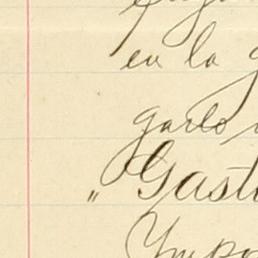 en la
garlo
"Gast
Impo